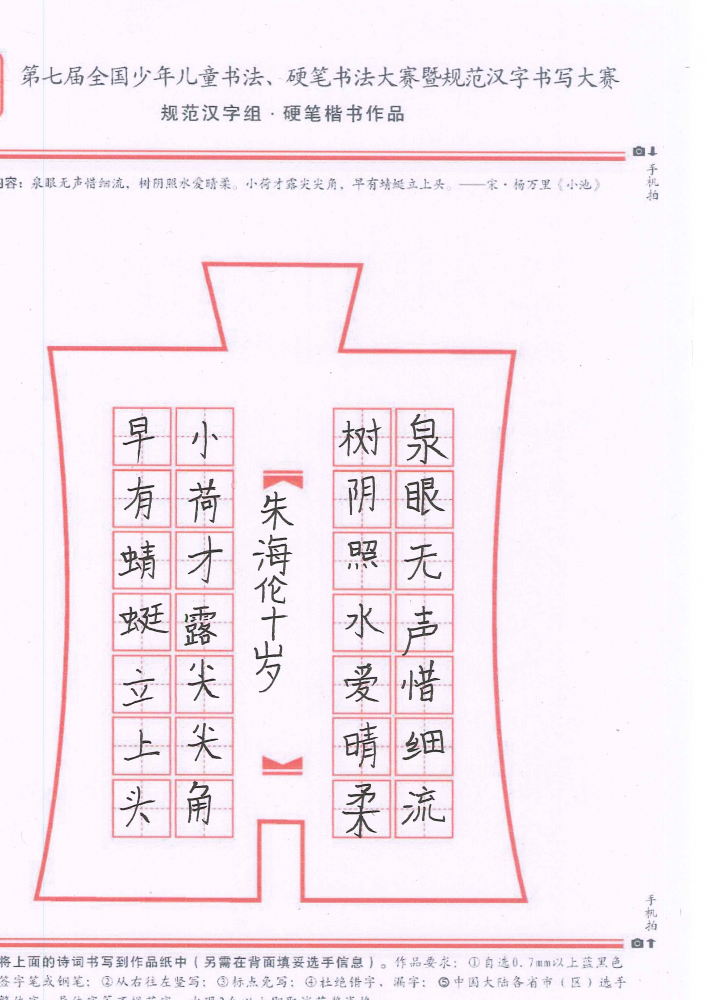 第七届全国少年儿童书法、硬笔书法大赛暨规范汉字书写大赛
规范汉字组·硬笔楷书作品
手机拍
内容：泉眼无声惜细流，树阴照水爱晴柔。小荷才露尖尖角，早有蜻蜓立上头。——宋·杨万里《小池》
泉眼无声惜细流
树阴照水爱晴柔
朱海伦十岁
小荷才露尖尖角
早有蜻蜓立上头
手机拍
将上面的诗词书写到作品纸中（另需在背面填妥选手信息）。作品要求：①自选0.7mm以上蓝黑色
签字笔或钢笔；②从右往左竖写；③标点免写；④杜绝错字、漏字；⑤中国大陆各省市（区）选手